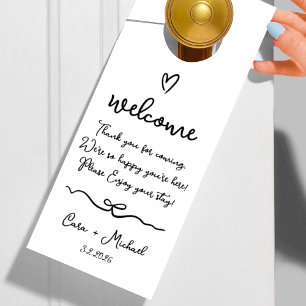 welcome
Thank you for coming,
We're so happy you're here!
Please Enjoy your stay!
Cara + Michael
3.2.2026